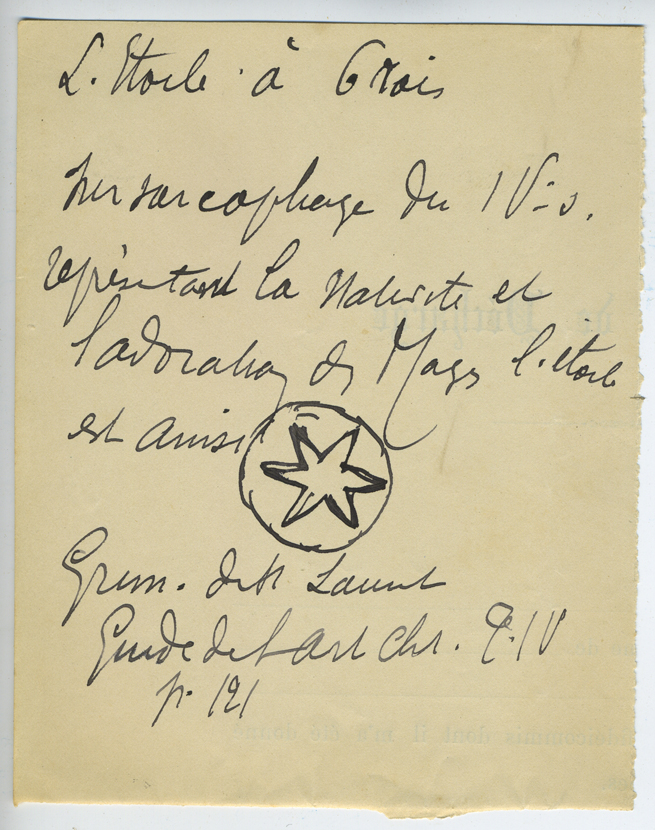 L'Etoile à 6 rais
sur sarcophage du IVe s.
représentant la nativité et
l'adoration des Mages l'étoile
est ainsi
Grim. de St Laurent
Guide de l'art chr. T. IV
p. 121